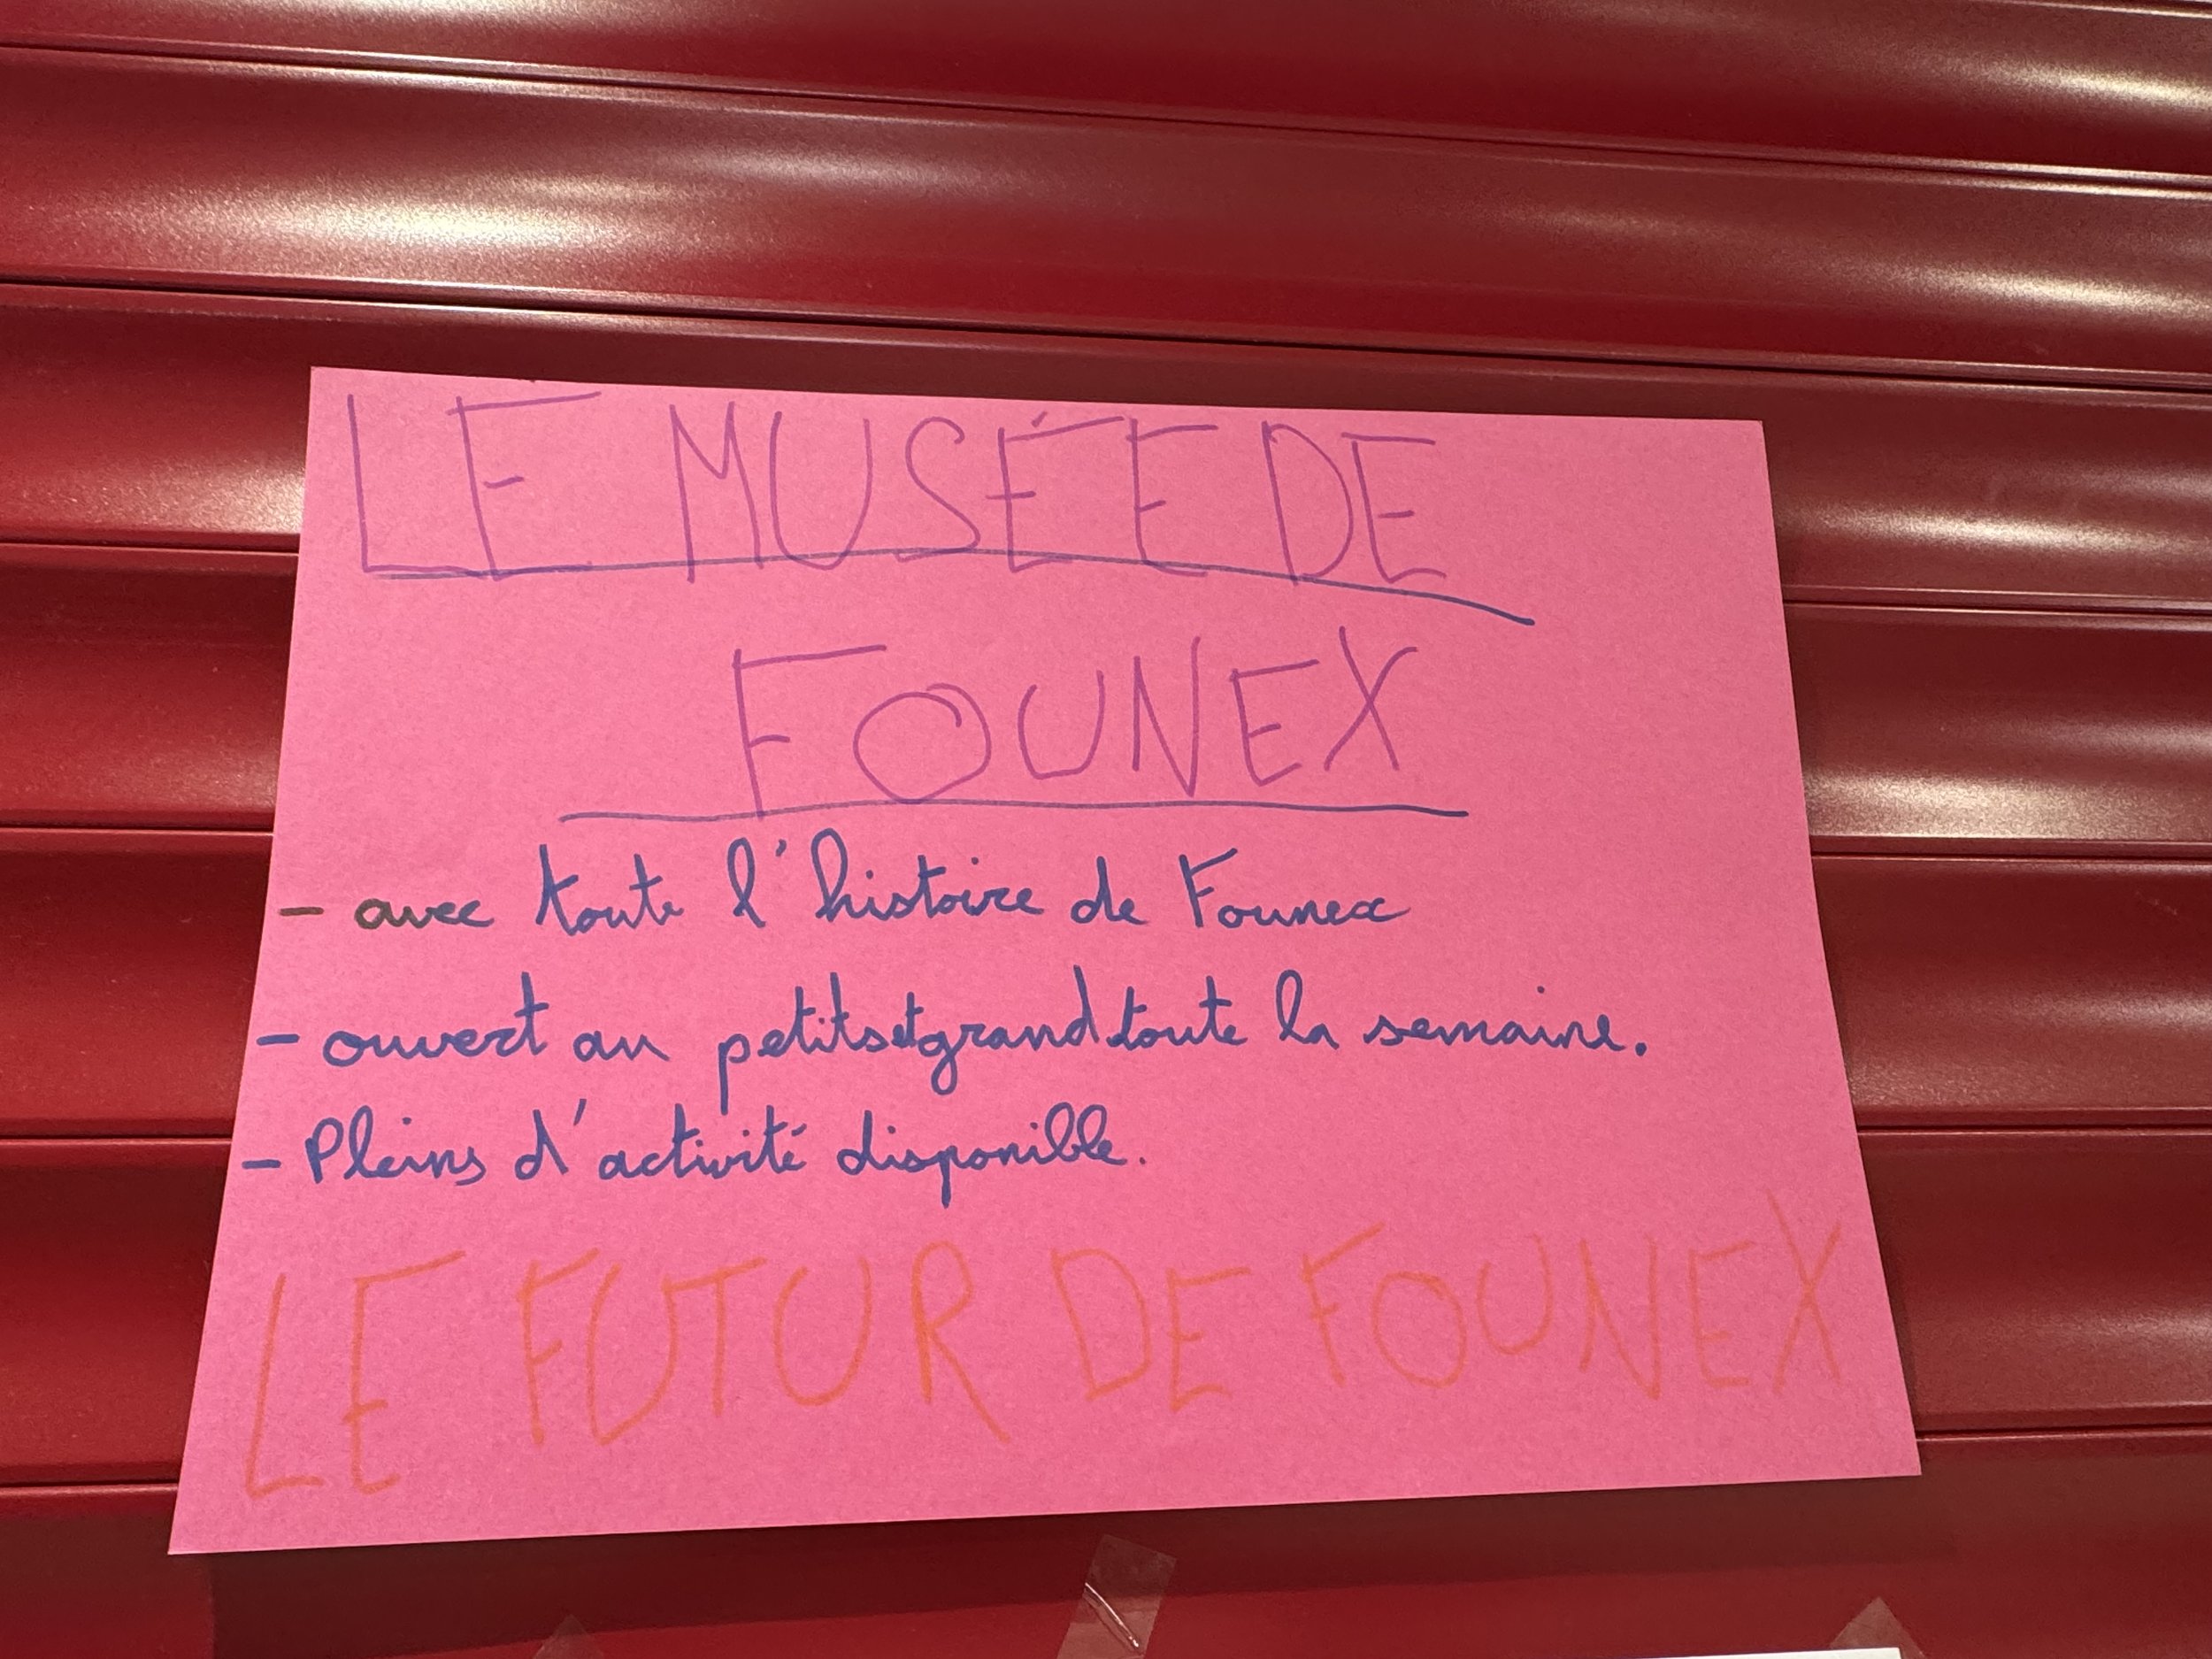 LE MUSÉE DE
FOUNEX
- avec toute l'histoire de Founex
- ouvert au petits et grand toute la semaine.
- Pleins d'activité disponible.
LE FUTUR DE FOUNEX